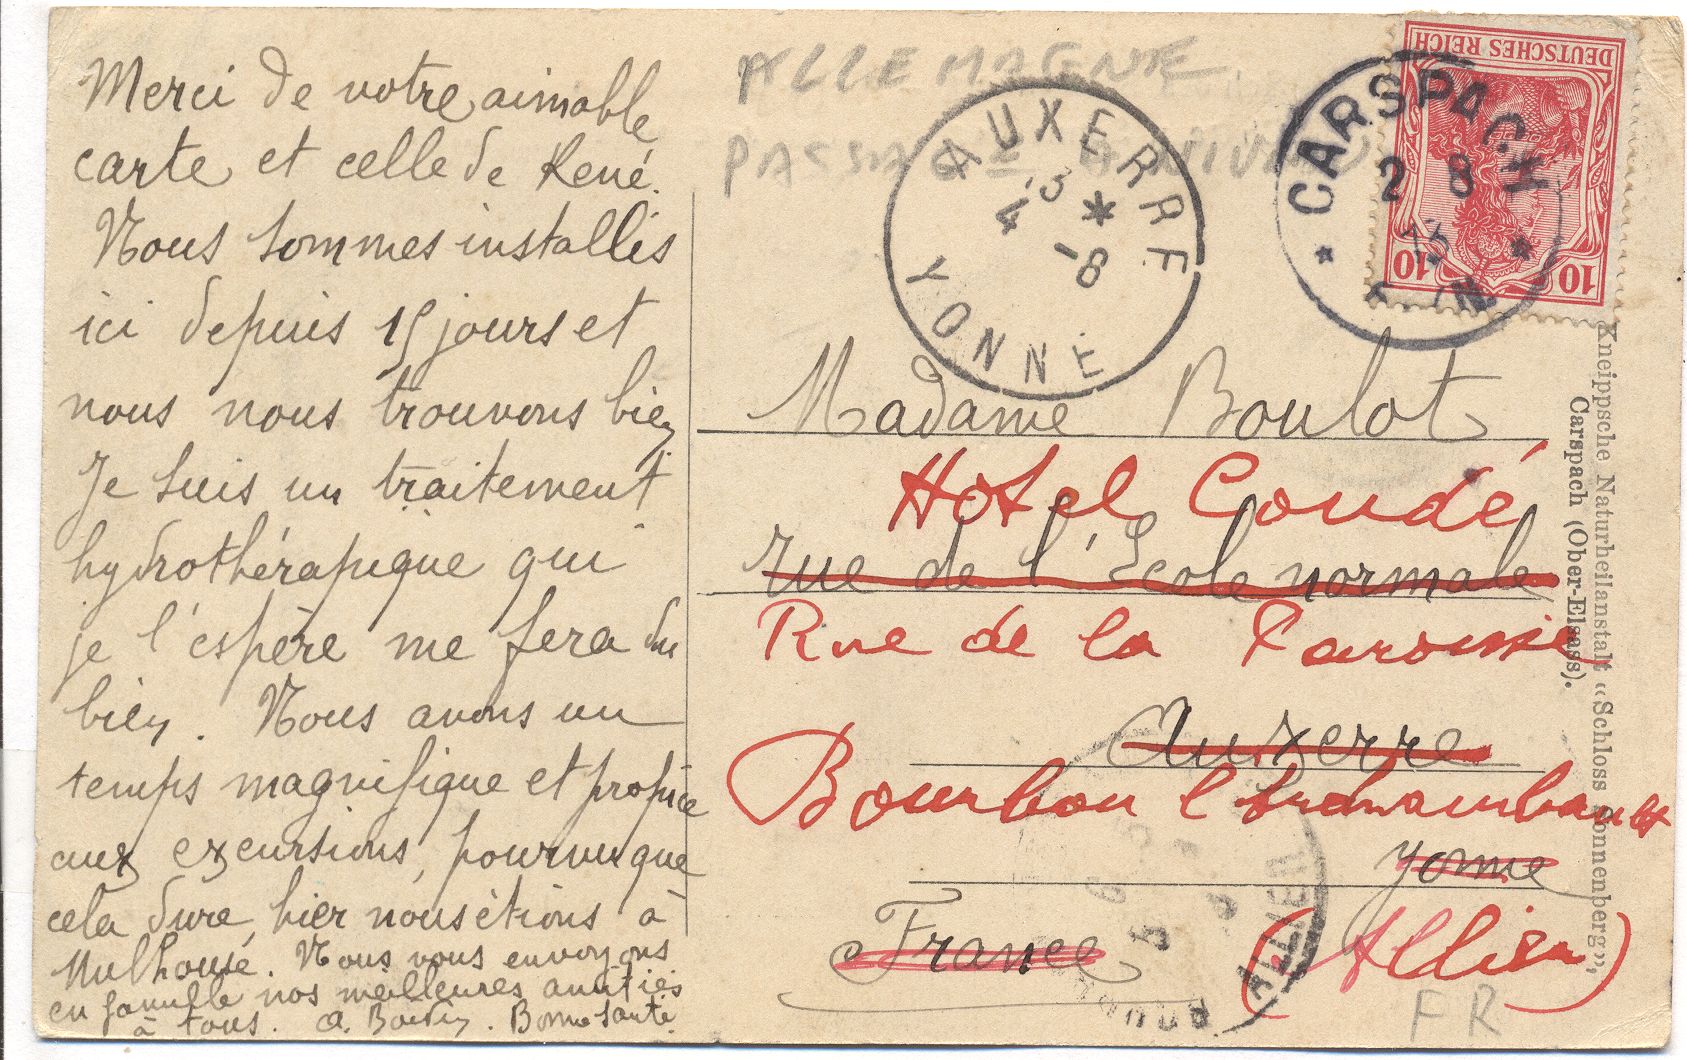 Merci de votre aimable
carte et celle de René.
Nous sommes installés
ici depuis 15 jours et
nous nous trouvons bien
Je suis un traitement
hydrothérapique qui
je l'espère me fera du
bien. Nous avons un
temps magnifique et propice
aux excursions, pourvu que
cela dure, hier nous étions à
Mulhouse. Nous vous envoyons
en famille nos meilleures amitiés
à tous. A. Bonne santé.
ALLEMAGNE
PASSAGE
AUXERRE
*
4 -8
YONNE
CARSPACH
2 8
* *
DEUTSCHES REICH
10 10
Madame Boulot
Hotel Condé
rue de l'École normale
Rue de la Paroisse
Auxerre
Bourbon l'Archambault
Yonne
France
(Allier)
ALLIER
FR
Kneippsche Naturheilanstalt «Schloss Sonnenberg»,
Carspach (Ober-Elsass).